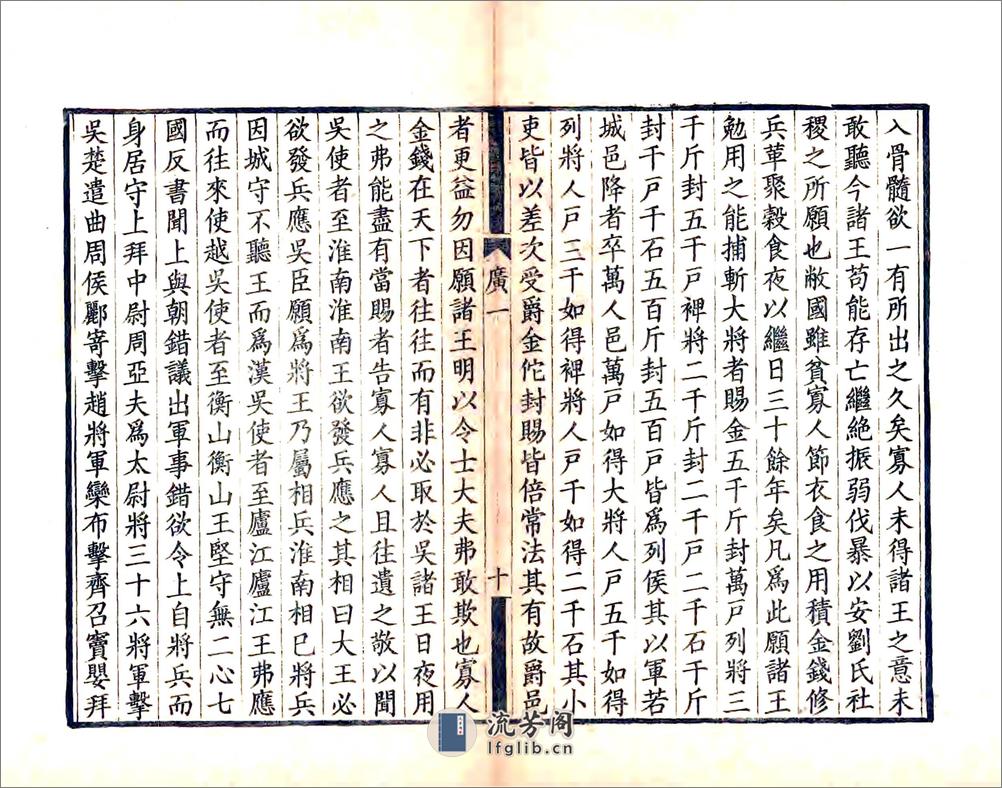 入骨髓欲一有所出之久矣寡人未得諸王之意未
敢聽今諸王苟能存亡繼絕振弱伐暴以安劉氏社
稷之所願也敝國雖貧寡人節衣食之用積金錢修
兵革聚穀食夜以繼日三十餘年矣凡爲此願諸王
勉用之能捕斬大將者賜金五千斤封萬戶列將三
千斤封五千戶裨將二千斤封二千戶二千石千斤
封千戶千石五百斤封五百戶皆爲列侯其以軍若
城邑降者卒萬人邑萬戶如得大將人戶五千如得
列將人戶三千如得裨將人戶千如得二千石其小
吏皆以差次受爵金佗封賜皆倍常法其有故爵邑
廣一
十
者更益勿因願諸王明以令士大夫弗敢欺也寡人
金錢在天下者往往而有非必取於吳諸王日夜用
之弗能盡有當賜者告寡人寡人且往遺之敬以聞
吳使者至淮南淮南王欲發兵應之其相曰大王必
欲發兵應吳臣願爲將王乃屬相兵淮南相已將兵
因城守不聽王而爲漢吳使者至廬江廬江王弗應
而往來使越吳使者至衡山衡山王堅守無二心七
國反書聞上與朝錯議出軍事錯欲令上自將兵而
身居守上拜中尉周亞夫爲太尉將三十六將軍擊
吳楚遣曲周侯酈寄擊趙將軍欒布擊齊召竇嬰拜
流芳阁
lfglib.cn